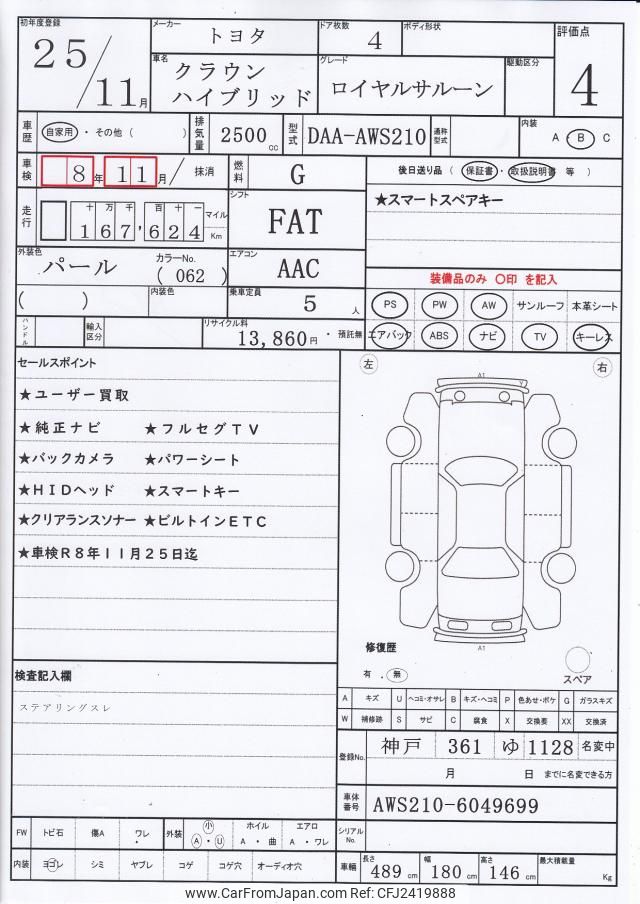 初年度登録 25/11月
メーカー トヨタ ドア枚数 4 ボディ形状
評価点 4
車名 クラウン ハイブリッド
グレード ロイヤルサルーン 駆動区分
車歴 自家用 ・ その他 ( )
排気量 2500 cc
型式 DAA-AWS210 通称型式
内装 A ・ B C
車検 8年11月/ 抹消
燃料 G
後日送り品 ( 保証書 ・ 取扱説明書 等 )
★スマートスペアキー
走行 十万千百十一 167,624 マイル Km
シフト FAT
外装色 パール カラーNo. ( 062 )
エアコン AAC
装備品のみ 〇印 を記入
( ) 内装色
乗車定員 5 人
PS PW AW サンルーフ 本革シート
エアバック ABS ナビ TV キーレス
ハンドル 輸入区分
リサイクル料 13,860円 ・ 預託無
セールスポイント
★ユーザー買取
★純正ナビ ★フルセグTV
★バックカメラ ★パワーシート
★HIDヘッド ★スマートキー
★クリアランスソナー ★ビルトインETC
★車検R8年11月25日迄
左 右
A1
A1
修復歴
有 . 無
スペア
検査記入欄
ステアリングスレ
A キズ U ヘコミ・オサレ B キズ・ヘコミ P 色あせ・ボケ G ガラスキズ
W 補修跡 S サビ C 腐食 X 交換要 XX 交換済
登録No. 神戸 361 ゆ 1128 名変中
月 日 までに名変できる方
車体番号 AWS210-6049699
シリアルNo.
FW トビ石 傷A ワレ 外装 小 A ・ U ホイル A ・ 曲 エアロ A ・ ワレ
内装 ヨゴレ シミ ヤブレ コゲ コゲ穴 オーディオ穴
車輛 長さ 489 cm 幅 180 cm 高さ 146 cm 最大積載量 Kg
www.CarFromJapan.com Ref: CFJ2419888